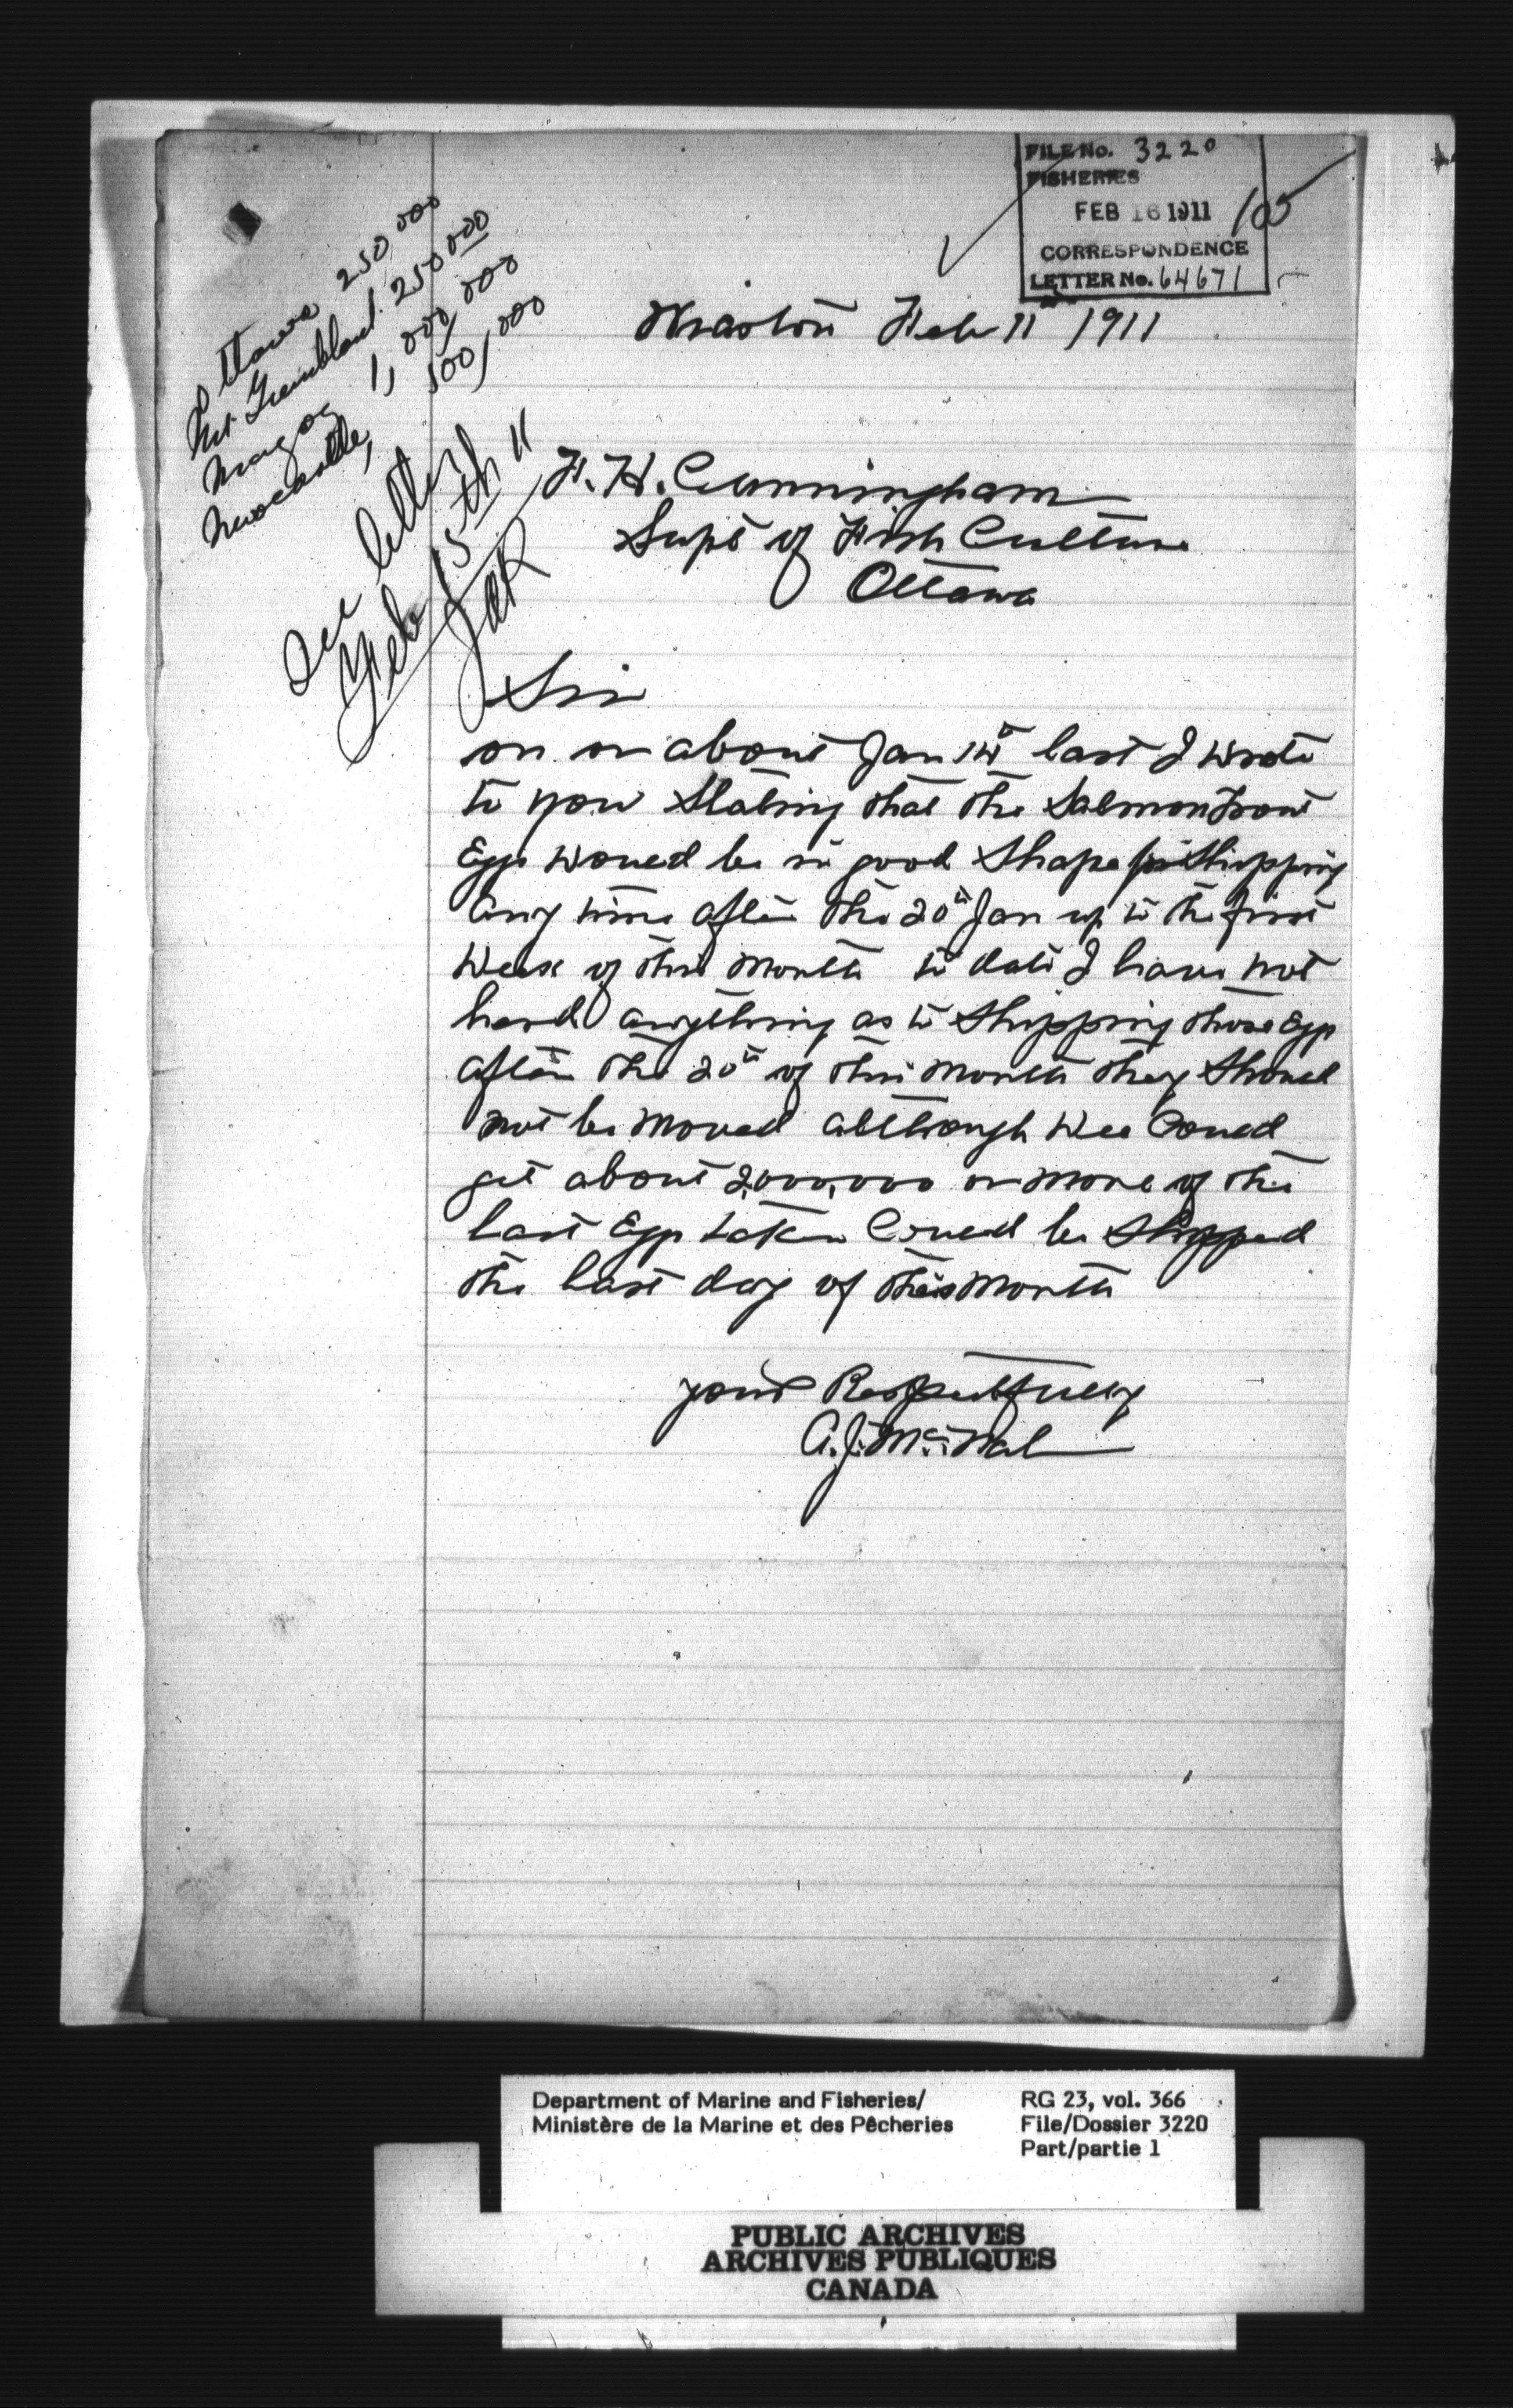 FILE No. 3220
FISHERIES
FEB 16 1911 105
CORRESPONDENCE
LETTER No. 64671
Ottawa 250 000
Mt Tremblant. 250 000
Magog 1,000,000
Newcastle, 500,000
See letter
Feb 15th 11
Wiarton Feb 11 1911
F. H. Cunningham
Supt of Fish Culture
Ottawa
Sir
on or about Jan 14th last I wrote
to you Stating that the Salmon Trout
Eggs would be in good Shape for Shipping
any time after the 20th Jan up to the first
Week of this Month to date I have not
heard anything as to Shipping those Eggs
after the 20th of this Month they Should
not be Moved although Wee Could
get about 2,000,000 or More of the
last Eggs taken Could be Shipped
the last day of this Month
yours Respectfully
A. J. McNab
Department of Marine and Fisheries/
Ministère de la Marine et des Pêcheries
RG 23, vol. 366
File/Dossier 3220
Part/partie 1
PUBLIC ARCHIVES
ARCHIVES PUBLIQUES
CANADA